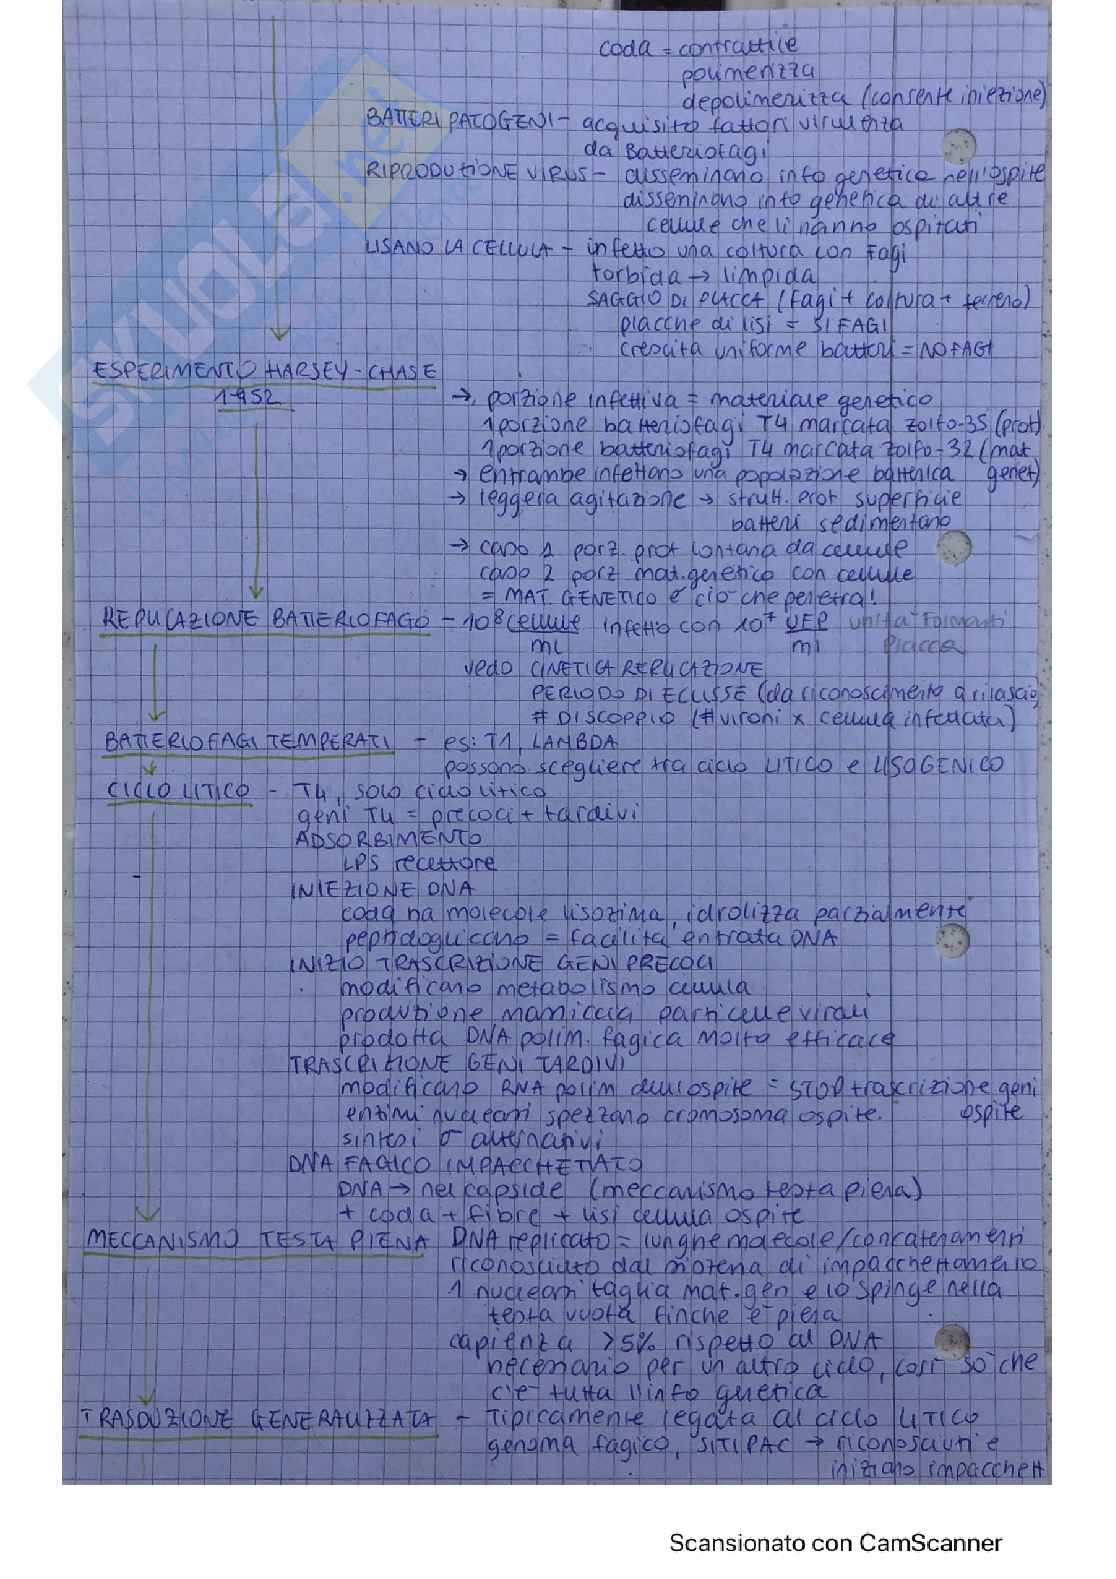 coda = contrattile
polimerizza
depolimerizza (consente iniezione)
BATTERI PATOGENI - acquisito fattori virulenza
da Batteriofagi
RIPRODUZIONE VIRUS - disseminano info genetica nell'ospite
disseminano info genetica di altre
cellule che li hanno ospitati
LISANO LA CELLULA - infetto una coltura con Fagi
torbida → limpida
SAGGIO DI PLACCA (fagi + coltura + terreno)
placche di lisi = SI FAGI
crescita uniforme batteri = NO FAGI
ESPERIMENTO HARSEY-CHASE
1952
→ porzione infettiva = materiale genetico
1 porzione batteriofagi T4 marcata zolfo-35 (prot)
1 porzione batteriofagi T4 marcata zolfo-32 (mat.
genet)
→ entrambe infettano una popolazione batterica
→ leggera agitazione → strutt. prot superficie
batteri sedimentano
→ caso 1 porz. prot lontana da cellule
caso 2 porz mat. genetico con cellule
= MAT. GENETICO È ciò che penetra!
REPLICAZIONE BATTERIOFAGO - 10^8 cellule/ml infetto con 10^7 UFP/ml unità Formanti Placca
vedo CINETICA REPLICAZIONE
PERIODO DI ECLISSE (da riconoscimento a rilascio)
# DI SCOPPIO (# vironi x cellula infettata)
BATTERIOFAGI TEMPERATI - es: T1, LAMBDA
possono scegliere tra ciclo LITICO e LISOGENICO
CICLO LITICO - T4, solo ciclo litico
geni T4 = precoci + tardivi
ADSORBIMENTO
LPS recettore
INIEZIONE DNA
coda ha molecole lisozima, idrolizza parzialmente
peptidoglicano = facilita entrata DNA
INIZIO TRASCRIZIONE GENI PRECOCI
modificano metabolismo cellula
produzione massiccia particelle virali
prodotta DNA polim. fagica molto efficace
TRASCRIZIONE GENI TARDIVI
modificano RNA polim dell'ospite = STOP trascrizione geni
ospite
enzimi nucleasi spezzano cromosoma ospite.
sintesi σ alternativi
DNA FAGICO IMPACCHETTATO
DNA → nel capside (meccanismo testa piena)
+ coda + fibre + lisi cellula ospite
MECCANISMO TESTA PIENA DNA replicato = lunghe molecole/concatenameri
riconosciuto dal sistema di impacchettamento
1 nucleasi taglia mat. gen e lo spinge nella
testa vuota finchè è piena
capienza >5% rispetto al DNA
necessario per un altro ciclo, così so che
c'è tutta l'info genetica
TRASDUZIONE GENERALIZZATA - Tipicamente legata al ciclo LITICO
genoma fagico, SITI PAC → riconosciuti e
iniziano impacchett
SKUOLA.net
Scansionato con CamScanner